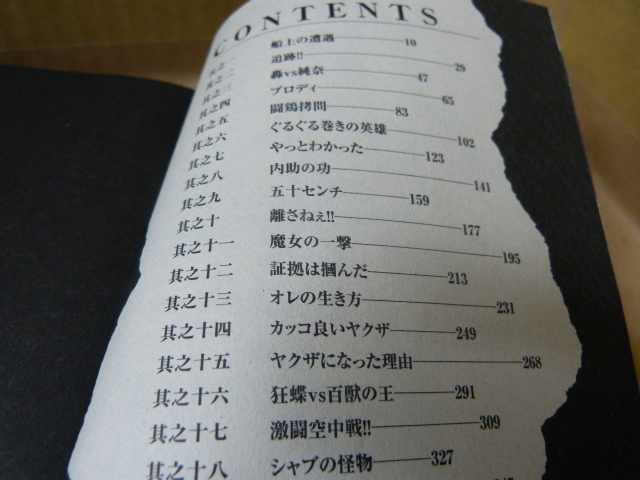 CONTENTS
其之一 船上の遭遇 10
其之二 追跡!! 29
其之三 轟vs純奈 47
其之四 ブロディ 65
其之五 闘鶏拷問 83
其之六 ぐるぐる巻きの英雄 102
其之七 やっとわかった 123
其之八 内助の功 141
其之九 五十センチ 159
其之十 離さねぇ!! 177
其之十一 魔女の一撃 195
其之十二 証拠は摑んだ 213
其之十三 オレの生き方 231
其之十四 カッコ良いヤクザ 249
其之十五 ヤクザになった理由 268
其之十六 狂蝶vs百獣の王 291
其之十七 激闘空中戦!! 309
其之十八 シャブの怪物 327